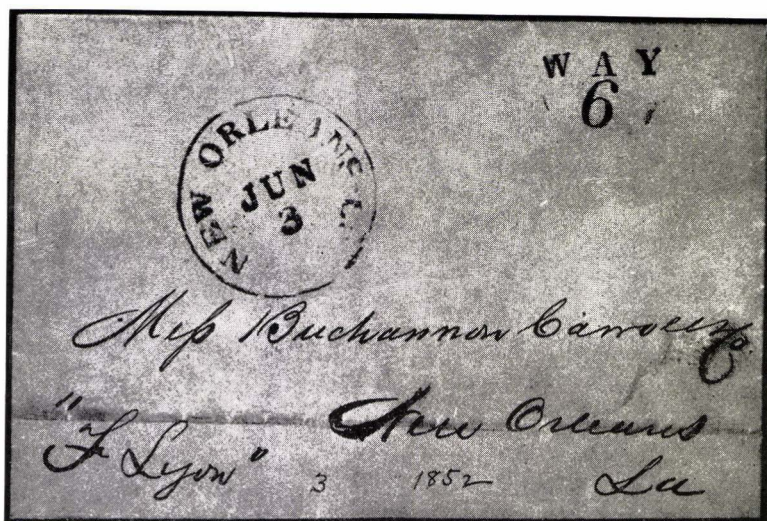 WAY
6
NEW ORLEANS L
JUN
3
Mess Buchannon Carroll & Co
New Orleans
"F Lyon"
La
3 1852